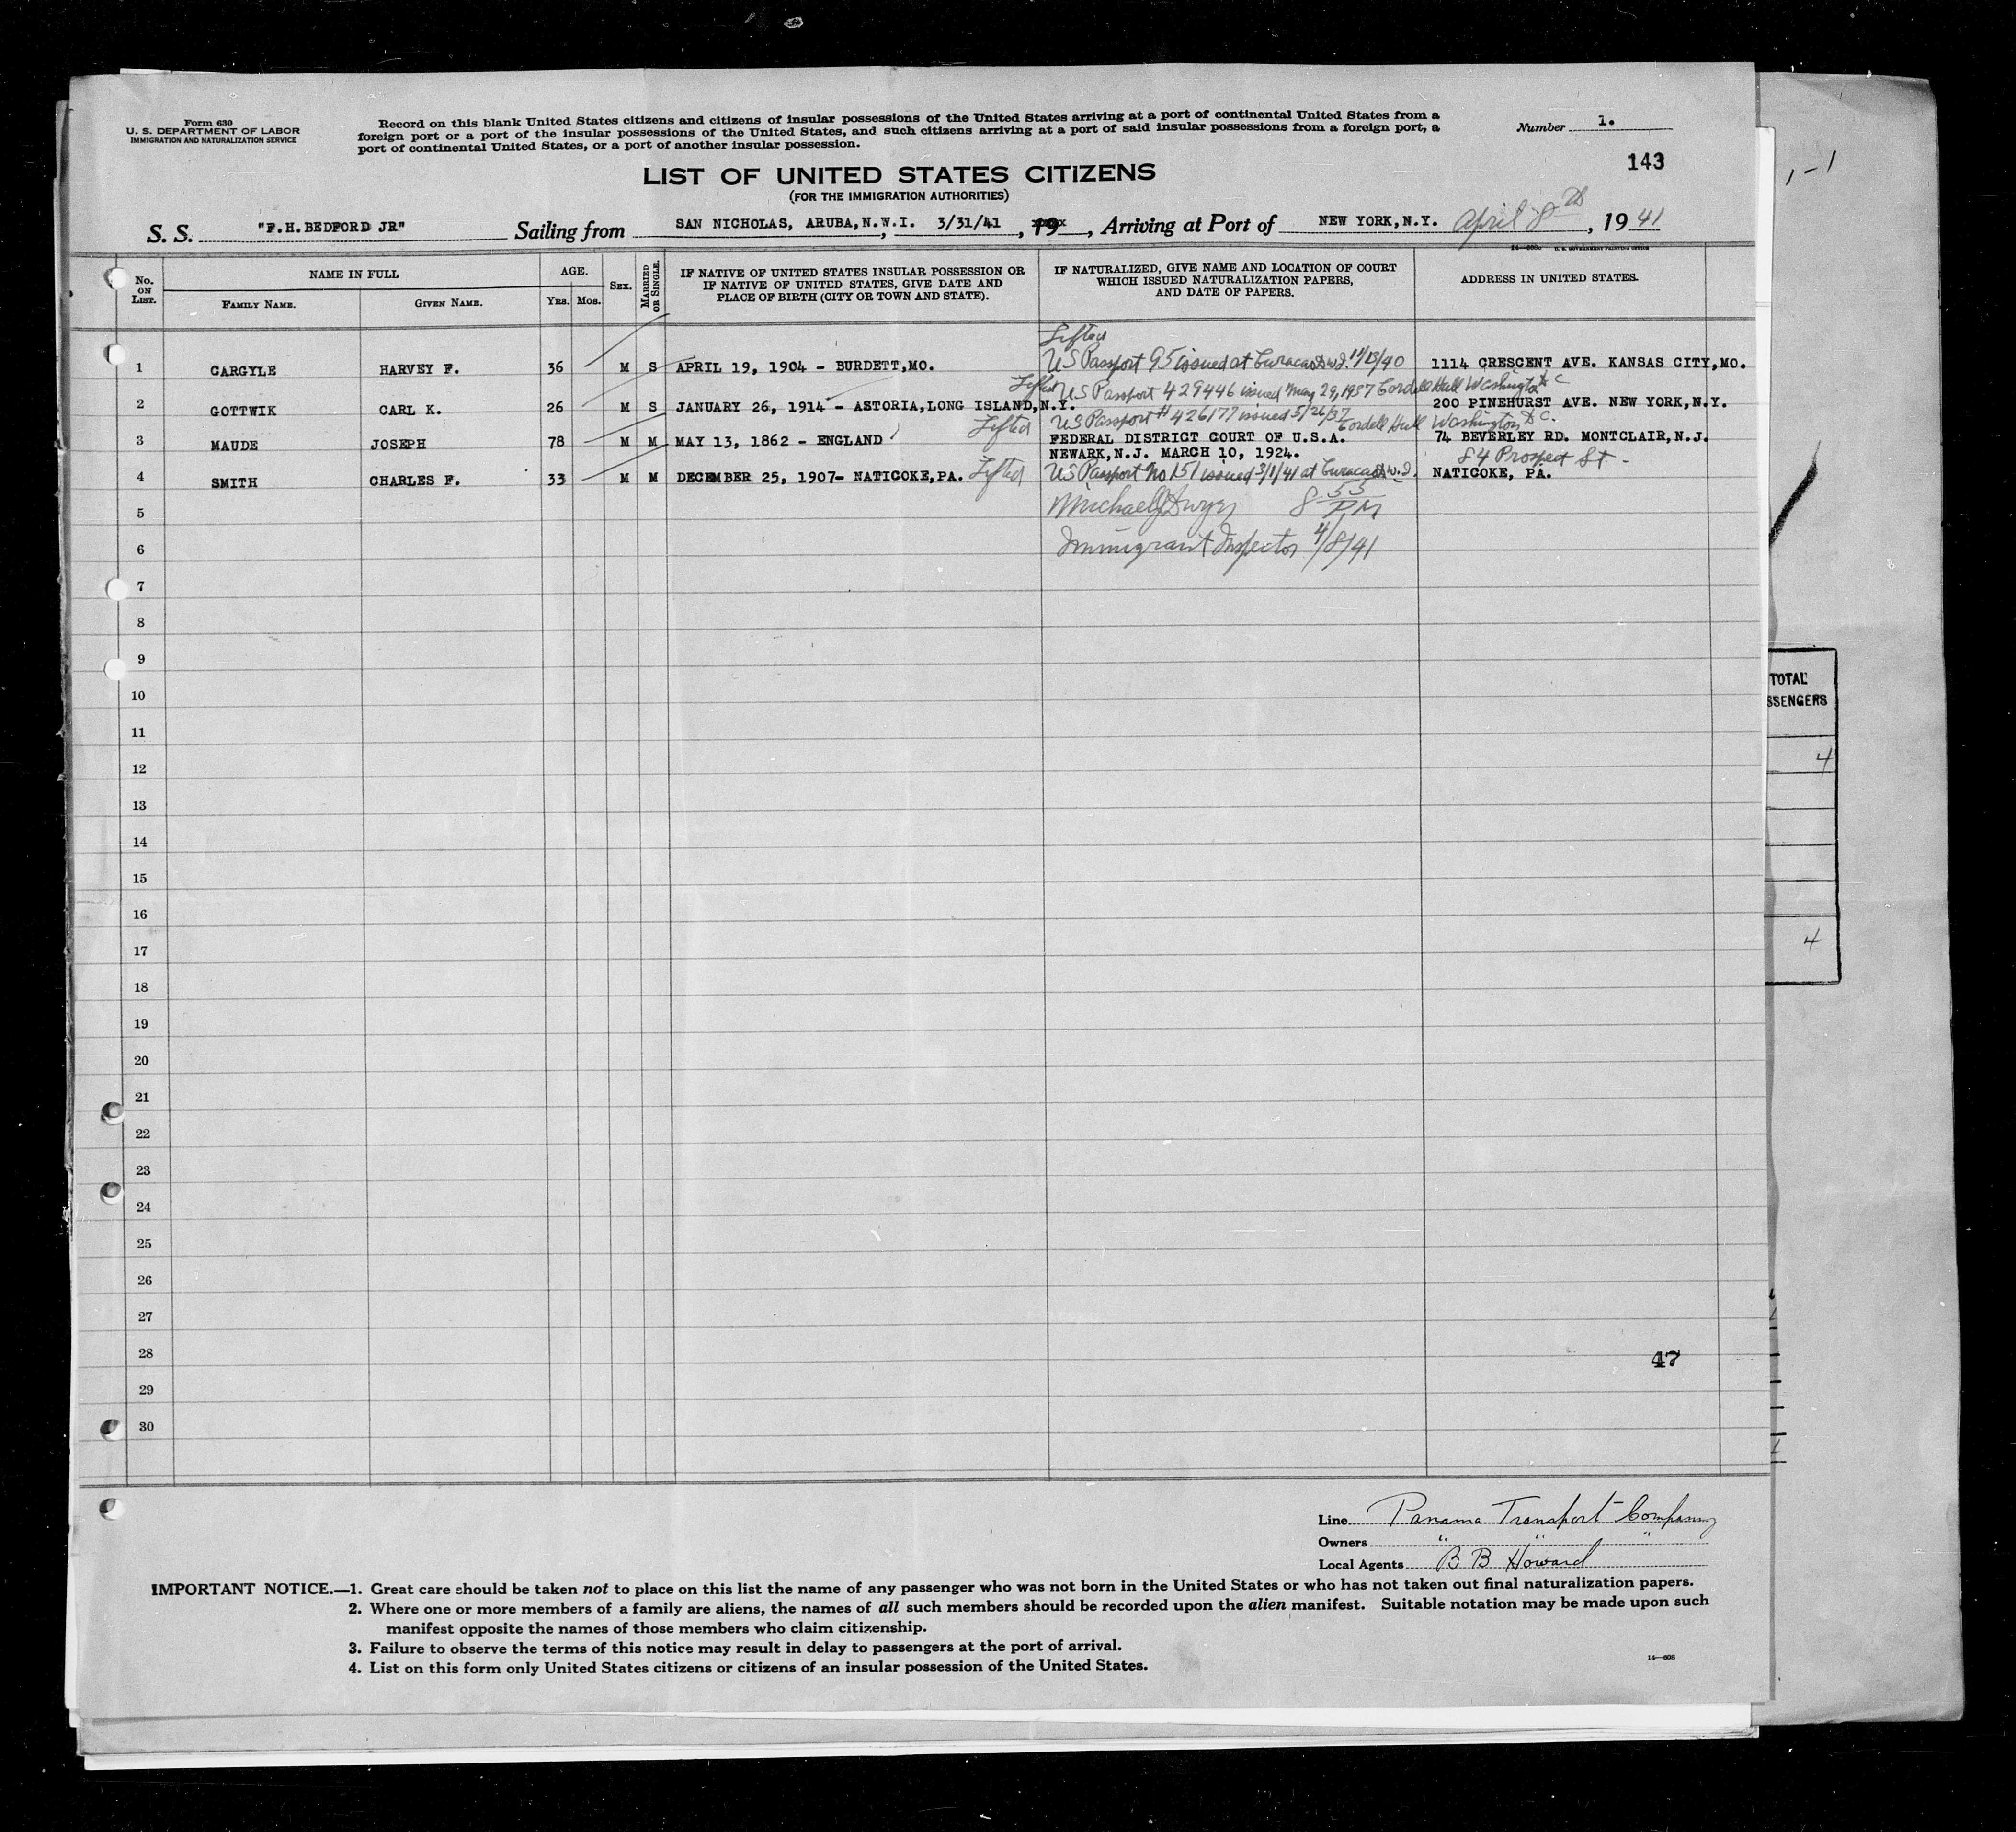 Form 630
U. S. DEPARTMENT OF LABOR
IMMIGRATION AND NATURALIZATION SERVICE
Record on this blank United States citizens and citizens of insular possessions of the United States arriving at a port of continental United States from a
foreign port or a port of the insular possessions of the United States, and such citizens arriving at a port of said insular possessions from a foreign port, a
port of continental United States, or a port of another insular possession.
Number 1.
143
LIST OF UNITED STATES CITIZENS
(FOR THE IMMIGRATION AUTHORITIES)
S. S. "F.H.BEDFORD JR" Sailing from SAN NICHOLAS, ARUBA,N.W.I. , 3/31/41 , 19 , Arriving at Port of NEW YORK,N.Y. April 8th , 19 41
No. ON LIST.
NAME IN FULL
FAMILY NAME.
GIVEN NAME.
AGE.
YRS. MOS.
SEX.
MARRIED OR SINGLE.
IF NATIVE OF UNITED STATES INSULAR POSSESSION OR
IF NATIVE OF UNITED STATES, GIVE DATE AND
PLACE OF BIRTH (CITY OR TOWN AND STATE).
IF NATURALIZED, GIVE NAME AND LOCATION OF COURT
WHICH ISSUED NATURALIZATION PAPERS,
AND DATE OF PAPERS.
ADDRESS IN UNITED STATES.
Lifted
US Passport 95 issued at Curacao N.W.I. 11/13/40
1 CARGYLE HARVEY F. 36 M S APRIL 19, 1904 - BURDETT,MO. 1114 CRESCENT AVE. KANSAS CITY,MO.
Lifted US Passport 429446 issued May 29, 1937 Cordell Hull Washington D C
2 GOTTWIK CARL K. 26 M S JANUARY 26, 1914 - ASTORIA,LONG ISLAND,N.Y. 200 PINEHURST AVE. NEW YORK,N.Y.
Lifted US Passport # 426177 issued 5/26/37 Cordell Hull Washington D C.
3 MAUDE JOSEPH 78 M M MAY 13, 1862 - ENGLAND FEDERAL DISTRICT COURT OF U.S.A. 74 BEVERLEY RD. MONTCLAIR,N.J.
NEWARK,N.J. MARCH 10, 1924.
84 Prospect St.
4 SMITH CHARLES F. 33 M M DECEMBER 25, 1907- NATICOKE,PA. Lifted US Passport No 151 issued 3/1/41 at Curacao N.W.I. NATICOKE, PA.
5 Michael J Dwyer 8 55 PM
6 Immigrant Inspector 4/8/41
7
8
9
10
11
12
13
14
15
16
17
18
19
20
21
22
23
24
25
26
27
28
47
29
30
TOTAL
SSENGERS
4
4
Line Panama Transport Company
Owners " " "
Local Agents B B Howard
IMPORTANT NOTICE.—1. Great care should be taken not to place on this list the name of any passenger who was not born in the United States or who has not taken out final naturalization papers.
2. Where one or more members of a family are aliens, the names of all such members should be recorded upon the alien manifest. Suitable notation may be made upon such
manifest opposite the names of those members who claim citizenship.
3. Failure to observe the terms of this notice may result in delay to passengers at the port of arrival.
4. List on this form only United States citizens or citizens of an insular possession of the United States.
14—608